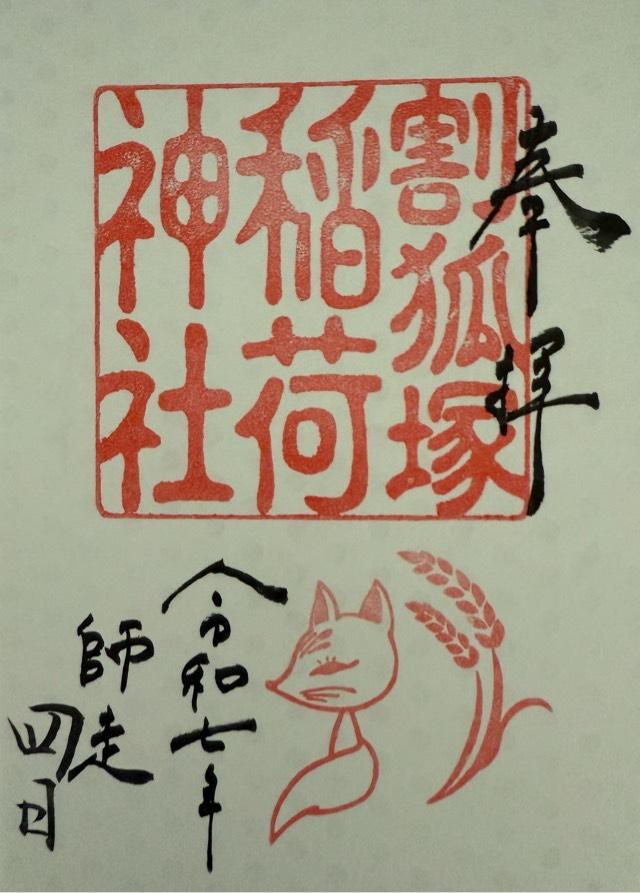 奉拝
割狐塚
稲荷
神社
令和七年
師走
四日